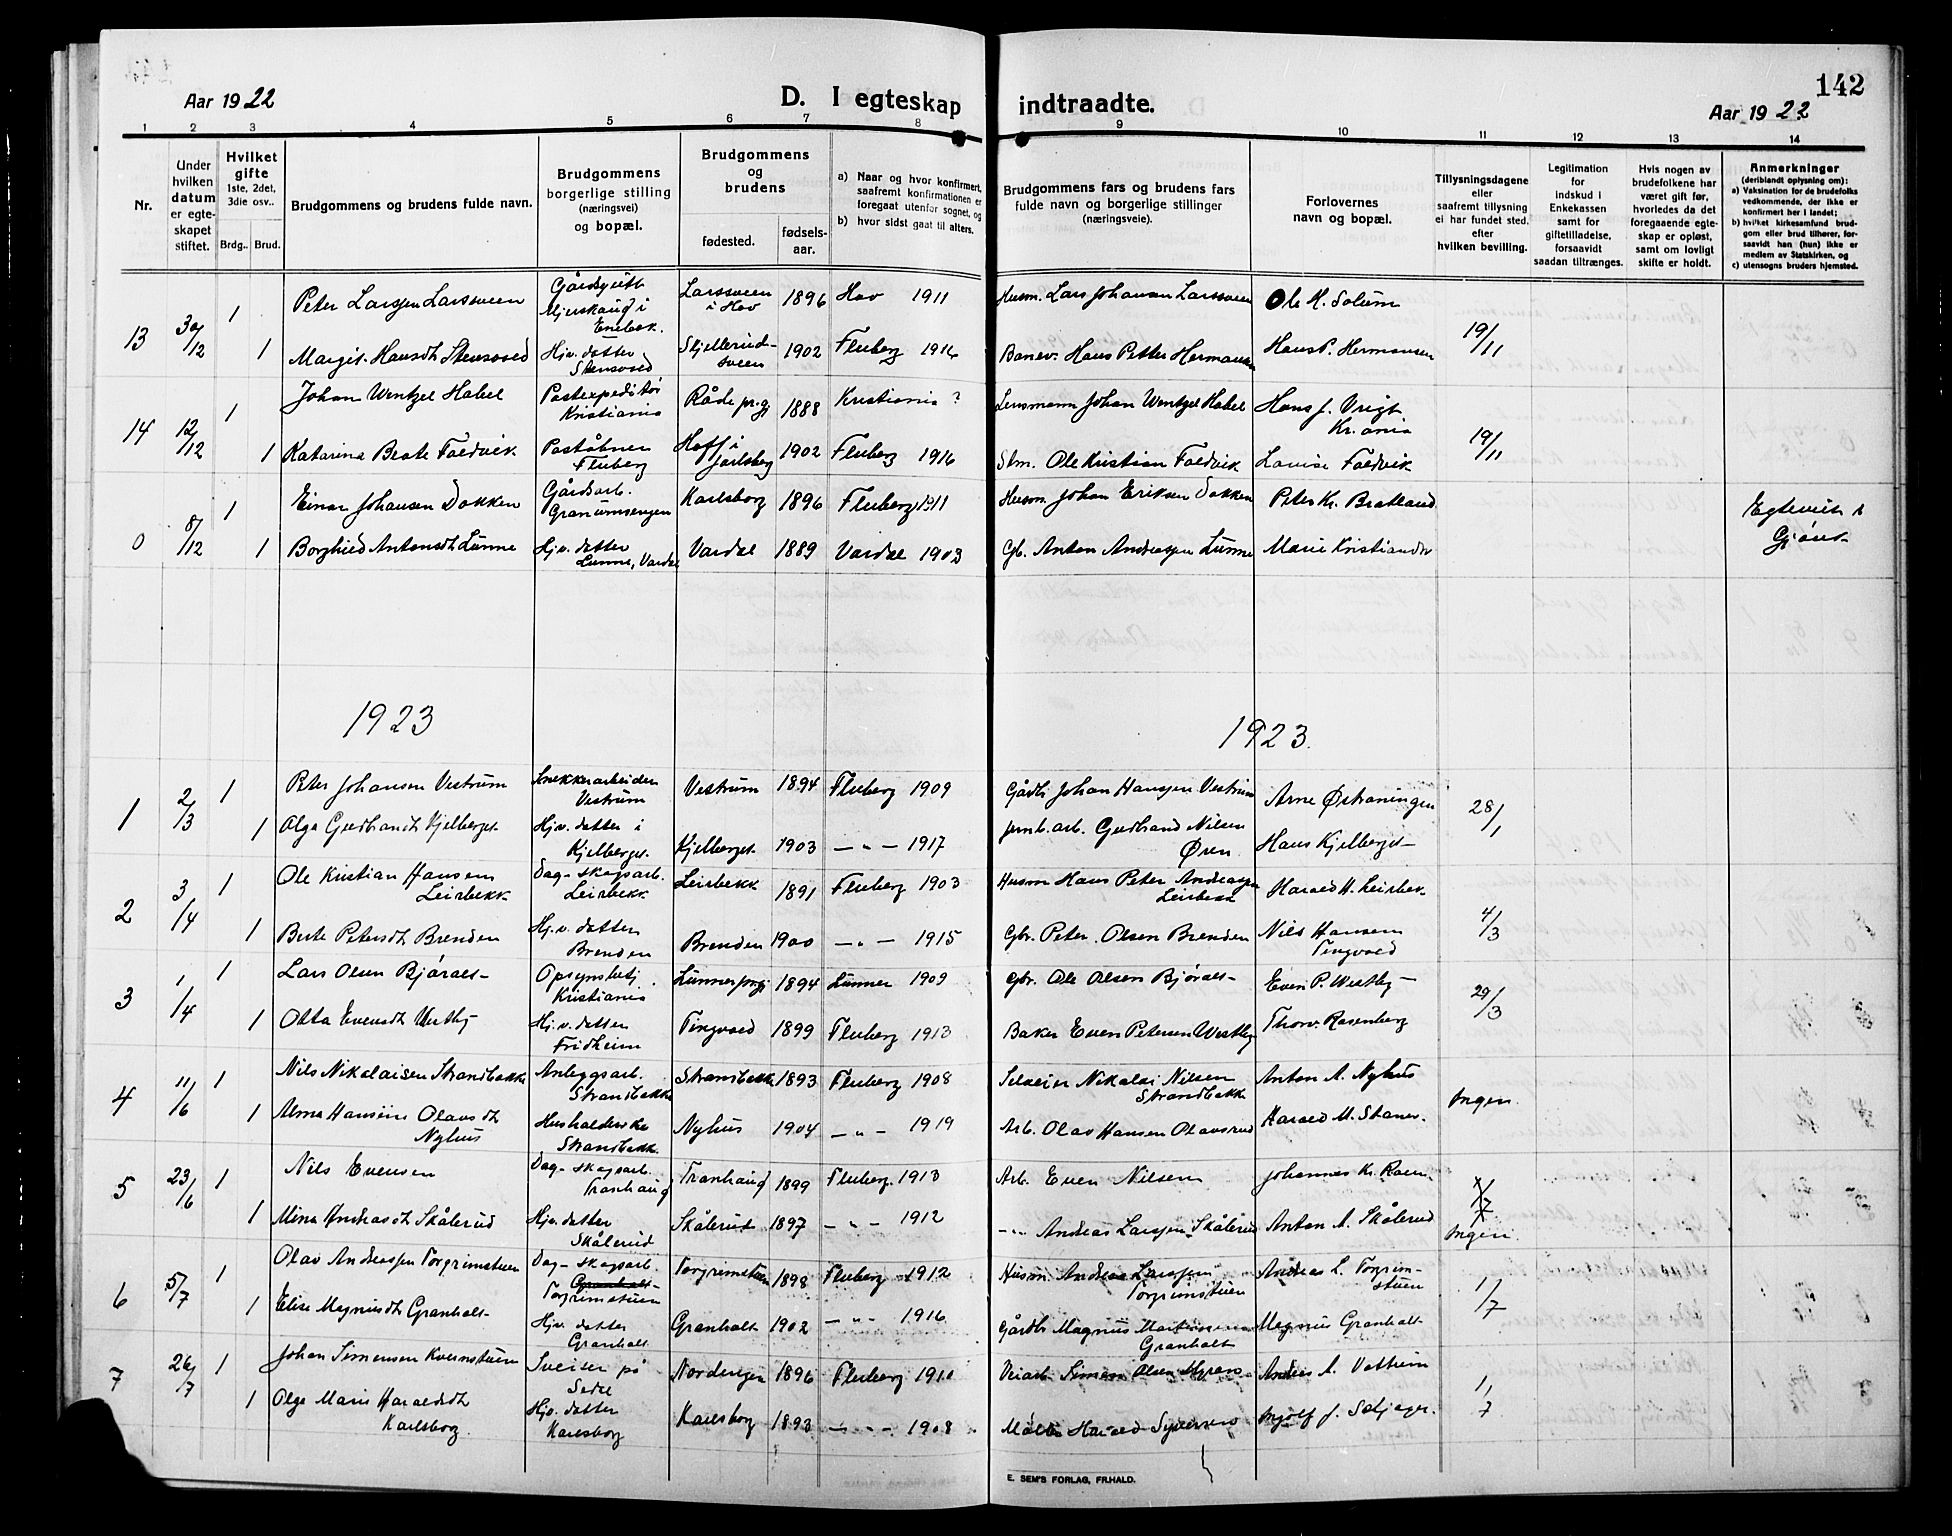 142
Aar 1922
D. I egteskap indtraadte.
Aar 1922
1 2 3 4 5 6 7 8 9 10 11 12 13 14
Nr.
Under hvilken datum er egteskapet stiftet.
Hvilket gifte 1ste, 2det, 3die osv..
Brdg.. Brud.
Brudgommens og brudens fulde navn.
Brudgommens borgerlige stilling (næringsvei) og bopæl.
Brudgommens og brudens
fødested. fødsels-aar.
a) Naar og hvor konfirmert, saafremt konfirmationen er foregaat utenfor sognet, og
b) hvor sidst gaat til alters.
Brudgommens fars og brudens fars fulde navn og borgerlige stillinger (næringsveie).
Forlovernes navn og bopæl.
Tillysningsdagene eller saafremt tillysning ei har fundet sted. efter hvilken bevilling.
Legitimation for indskud i Enkekassen samt for giftetilladelse, forsaavidt saadan tiltrænges.
Hvis nogen av brudefolkene har været gift før, hvorledes da det foregaaende egteskap er opløst, samt om lovligt skifte er holdt.
Anmerkninger (deriblandt oplysning om): a) Vaksination for de brudefolks vedkommende, der ikke er konfirmert her i landet; b) hvilket kirkesamfund brudgom eller brud tilhører, forsaavidt han (hun) ikke er medlem av Statskirken, og c) utensogns bruders hjemsted.
13 30/12 1 Peter Larssen Larssveen Gårdsgutt Mjerskaug i Enebak. Larssveen i Hov 1896 Hov 1911 Husm. Lars Johanan Larssveen Ole H. Solum 19/11
1 Margit Hansdt Stensvoed Hjv. datter Skjellerudsveen 1902 Fluberg 1916 Banev. Hans Petter Hermansen Hans P. Hermansen
14 12/12 1 Johan Wentzel Habel Postexpeditør Kristiania Råde pr.gj 1888 Kristiania ? Lensmann Johan Wentzel Habel Hans J. Vrigt Kr.ania 19/11
1 Katarina Beate Foldvik Poståbner Fluberg Hoff i Jarlsberg 1902 Fluberg 1916 Slm. Ole Kristian Foldvik Lovise Foldvik
0 8/12 1 Einar Johansen Dokken Gårdsarb. Granumsengen Karlsborg 1896 Fluberg 1911 Husm. Johan Eriksen Dokken Peter Kr. Bratland Egteviet i Gjøvik
1 Borghild Antonsdt Lunne Hjv. datter Lunne, Vardal Vardal 1889 Vardal 1903 Gb. Anton Andreassen Lunne Marie Kristiansdr
1923 1923.
1 2/3 1 Peter Johansen Vestrum Snekkerarbeider Vestrum Vestrum 1894 Fluberg 1909 Gårdbr Johan Hanssen Vestrum Arne Østraningen 28/1
1 Olga Gudbrandt Kjelberget Hjv. datter i Kjelberget Kjelberget 1903 — „ — 1917 Jernb.arb. Gudbrand Nilsen Øren Hans Kjelberget
2 3/4 1 Ole Kristian Hansen Leirbekk Dag- skogsarb. Leirbekk Leirbekk 1891 Fluberg 1903 Husm Hans Peter Andreassen Leirbekk Harald H. Leirbek 4/3
1 Berte Petersdt Brenden Hj.v. datter Brenden Brenden 1900 — „ — 1915 Gbr. Peter Olsen Brenden Nils Hansen Tingvold
3 1/4 1 Lars Olsen Bjøralt Opsynsbetj. Kristiania Lunner prgj 1894 Lunner 1909 Gbr. Ole Olsen Bjøralt Even P. Westby 29/3
1 Otta Evensdt Westby Hj.v. datter Fridheim Tingvold 1899 Fluberg 1913 Baker Even Petersen Westby Thorv. Rosenberg
4 11/6 1 Nils Nikolaisen Strandbakke Anleggsarb. Strandbakke Strandbakke 1893 Fluberg 1908 Selveier Nikolai Nilsen Strandbakke Anton A. Nyhus Ingen.
1 Alma Hansine Olavsdt Nyhus Husholderske Strandbakk. Nyhus 1904 — „ — 1919 Arb. Olav Hansen Olavsrud Harald M. Staner.
5 23/6 1 Nils Evensen Dag- skogsarb. Tranhaug Tranhaug 1899 Fluberg. 1913 Arb. Even Nilsen Johannes Kr. Roen 1/7 Ingen.
1 Mina Andreasdt Skålerud Hjv. datter Skålerud Skålerud 1897 — „ — 1912 — „ — Andreas Larssen Skålerud Anton A. Skålerud
6 5/7 1 Olav Andreassen Torgrimstuen Dag- skogsarb. Granholt Torgrimstuen Torgrimstuen 1898 Fluberg 1912 Husm. Andreas Larssen Torgrimstuen Andreas L. Torgrimstuen 1/7
1 Elise Magnusdt Granholt Hjv. datter Granholt Granholt 1902 — „ — 1916 Gårdbr Magnus Martinsen Granholt Magnus Granholt
7 26/7 1 Johan Simensen Kvernstuen Sveiser på Nordengen 1896 Fluberg 1910 Veiarb. Simen Olsen Anders A. Vestrum 1/7
1 Olga Marie Haraldsdt Karlsborg. Hjv. datter Karlsborg Karlsborg 1893 — „ — 1908 Harald Ingolf J.
E. SEM'S FORLAG, FR.HALD.